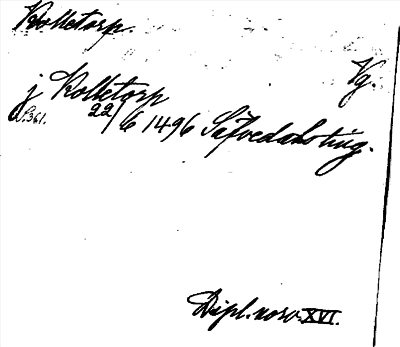 Kolletorp.
Vg.
j Kolletorp
S. 361. 22/6 1496 Säfvedals ting.
Dipl. norv. XVI.